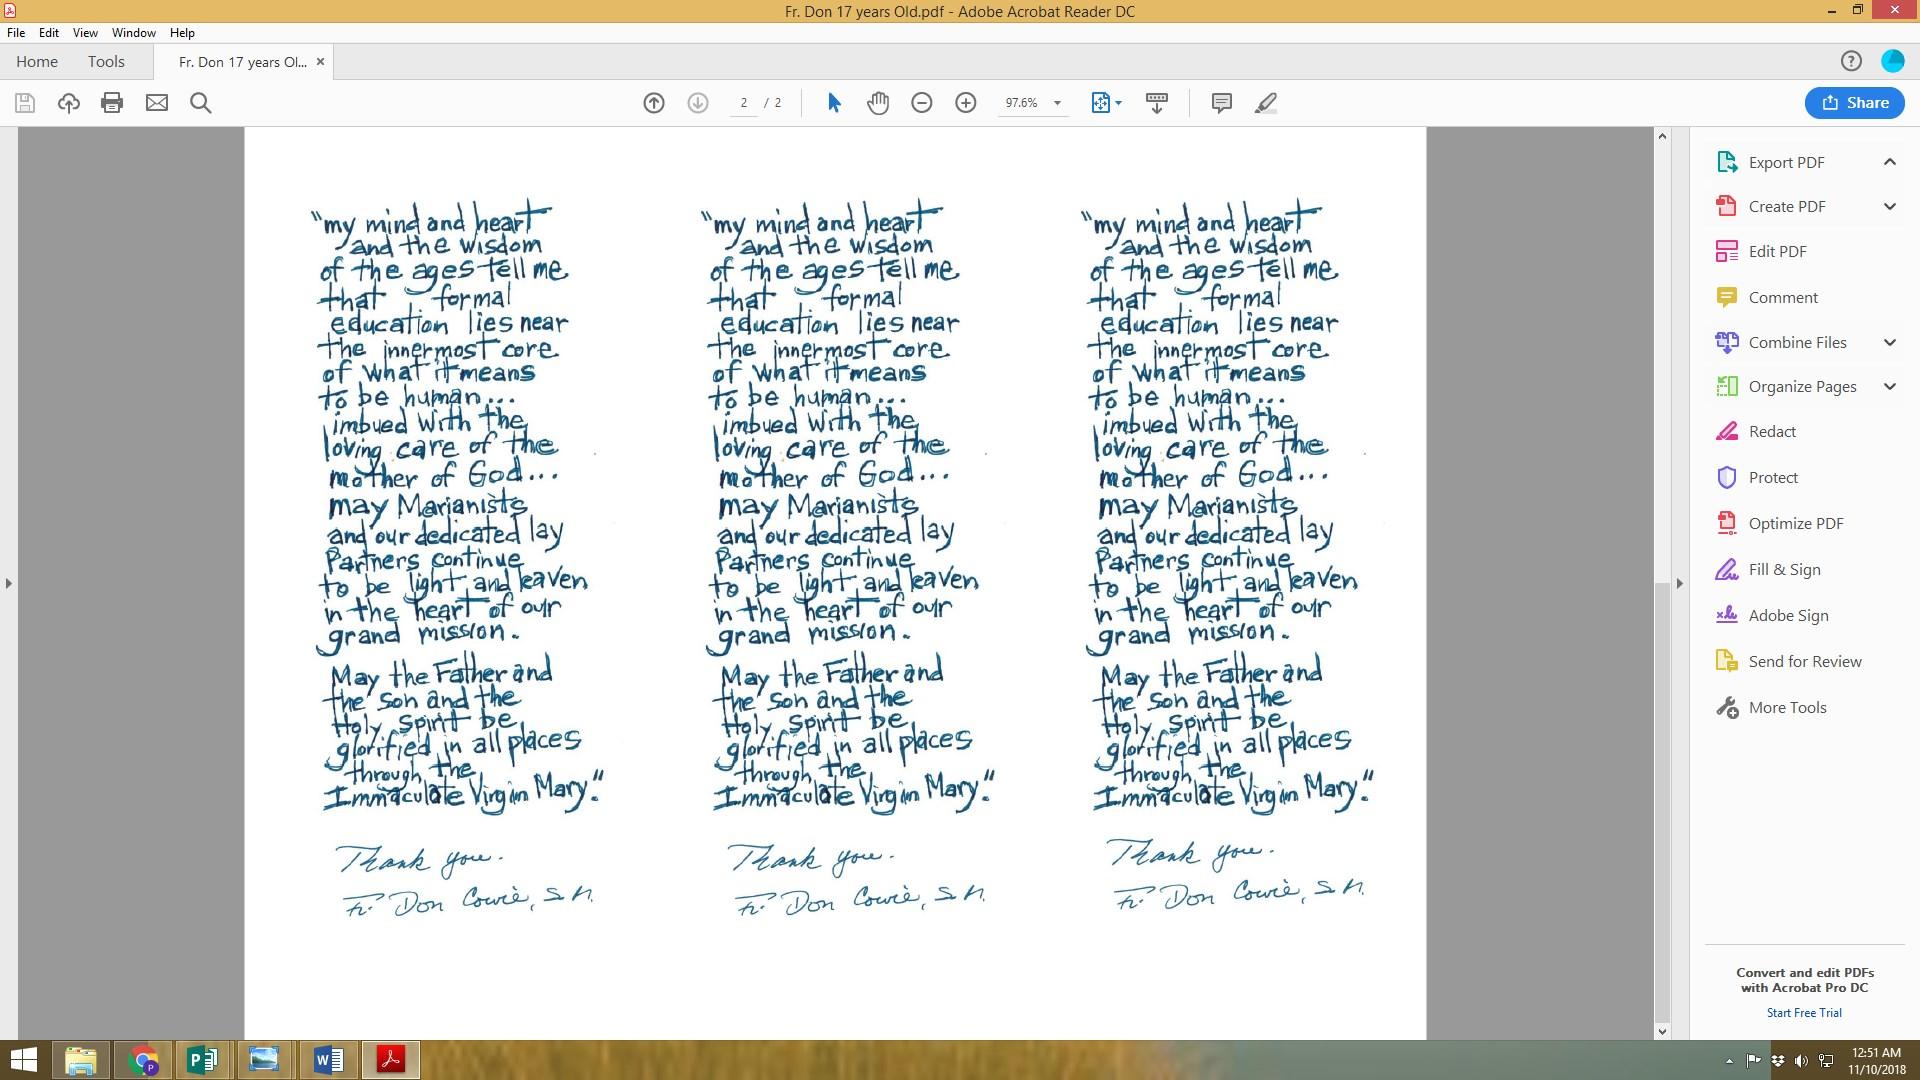 Fr. Don 17 years Old.pdf - Adobe Acrobat Reader DC
File Edit View Window Help
Home Tools Fr. Don 17 years Ol... ×
2 / 2 97.6% Share
"my mind and heart
and the wisdom
of the ages tell me
that formal
education lies near
the innermost core
of what it means
to be human...
imbued with the
loving care of the
mother of God...
may Marianists
and our dedicated lay
Partners continue
to be light and leaven
in the heart of our
grand mission.
May the Father and
the Son and the
Holy Spirit be
glorified in all places
through the
Immaculate Virgin Mary."
Thank you.
Fr. Don Cowie, S.M.
"my mind and heart
and the wisdom
of the ages tell me
that formal
education lies near
the innermost core
of what it means
to be human...
imbued with the
loving care of the
mother of God...
may Marianists
and our dedicated lay
Partners continue
to be light and leaven
in the heart of our
grand mission.
May the Father and
the Son and the
Holy Spirit be
glorified in all places
through the
Immaculate Virgin Mary."
Thank you.
Fr. Don Cowie, S.M.
"my mind and heart
and the wisdom
of the ages tell me
that formal
education lies near
the innermost core
of what it means
to be human...
imbued with the
loving care of the
mother of God...
may Marianists
and our dedicated lay
Partners continue
to be light and leaven
in the heart of our
grand mission.
May the Father and
the Son and the
Holy Spirit be
glorified in all places
through the
Immaculate Virgin Mary."
Thank you.
Fr. Don Cowie, S.M.
Export PDF
Create PDF
Edit PDF
Comment
Combine Files
Organize Pages
Redact
Protect
Optimize PDF
Fill & Sign
Adobe Sign
Send for Review
More Tools
Convert and edit PDFs
with Acrobat Pro DC
Start Free Trial
12:51 AM
11/10/2018